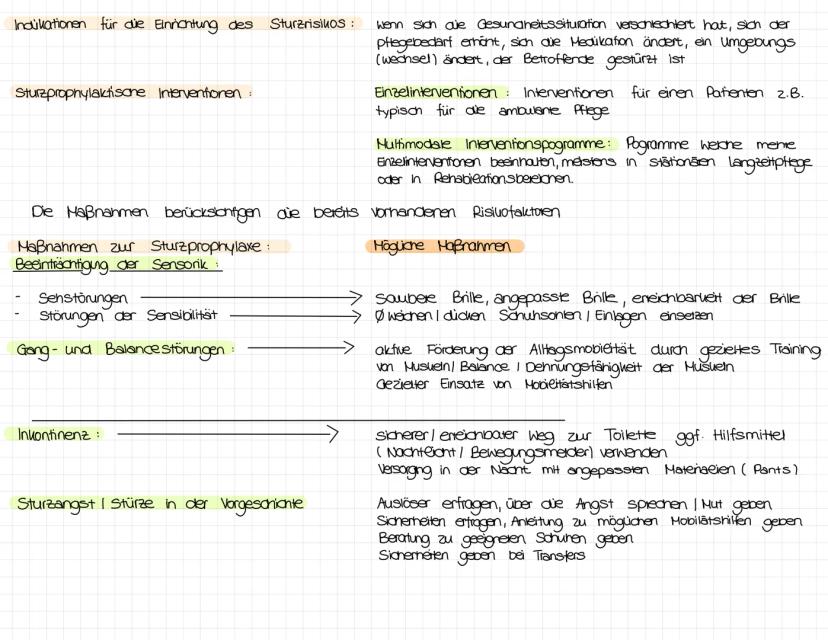 Indikationen für die Einrichtung des Sturzrisikos: wenn sich die Gesundheitssituation verschlechtert hat, sich der
pflegebedarf erhöht, sich die Medikation ändert, ein Umgebungs
(wechsel) ändert, der Betroffende gestürzt ist
Sturzprophylaktische Interventionen: Einzelinterventionen: Interventionen für einen Patienten z.B.
typisch für die ambulante Pflege
Multimodale Interventionspogramme: Pogramme welche mehre
Einzelinterventionen beeinhalten, meistens in stationären langzeitpflege
oder in Rehabilitationsbereichen.
Die Maßnahmen berücksichtigen die bereits vorhandenen Risikofaktoren
Maßnahmen zur Sturzprophylaxe: Mögliche Maßnahmen
Beeinträchtigung der Sensorik:
- Sehstörungen → Saubere Brille, angepasste Brille, erreichbarkeit der Brille
- Störungen der Sensibilität → Ø weichen / dicken Schuhsohlen / Einlagen einsetzen
Gang- und Balancestörungen: → aktive Förderung der Alltagsmobilität durch gezieltes Training
von Muskeln / Balance / Dehnungsfähigkeit der Muskeln
Gezielter Einsatz von Mobilitätshilfen
Inkontinenz: → sicherer / erreichbarer Weg zur Toilette ggf. Hilfsmittel
(Nachtlicht / Bewegungsmelder) verwenden
Versorgng in der Nacht mit angepassten Materialien (Pants)
Sturzangst / Stürze in der Vorgeschichte Auslöser erfragen, über die Angst sprechen / Mut geben
Sicherheiten erfragen, Anleitung zu möglichen Mobilitätshilfen geben
Beratung zu geeigneten Schuhen geben
Sicherheiten geben bei Transfers